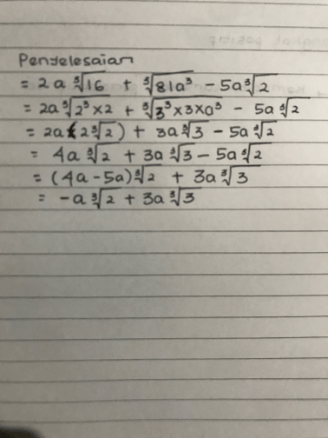 Penyelesaian
= 2a ∛16 + ∛81a³ - 5a ∛2
= 2a ∛2³×2 + ∛3³×3×a³ - 5a ∛2
= 2a (2∛2) + 3a ∛3 - 5a ∛2
= 4a ∛2 + 3a ∛3 - 5a ∛2
= (4a - 5a) ∛2 + 3a ∛3
= -a ∛2 + 3a ∛3